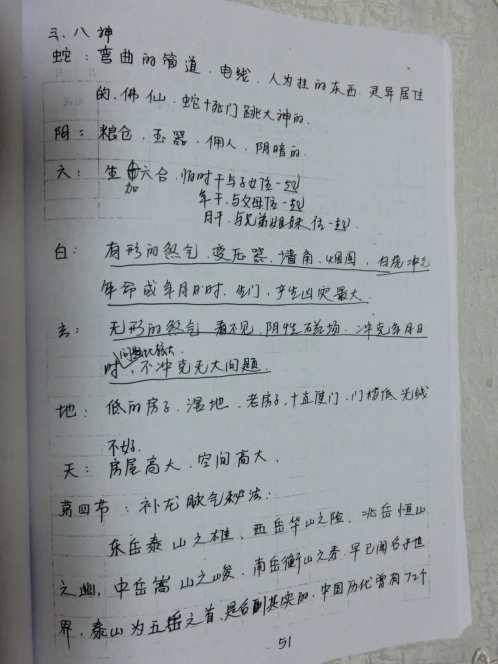 三、八神
蛇：弯曲的管道、电线、人为挂的东西、灵异居住
的、佛仙、蛇+死门跳大神的、
阴：粮仓、玉器、佣人、阴暗的
六：生+六合、怕时干与子女位一起
加
年干、与父母位一起
月干、与兄弟姐妹位一起、
白：有形的煞气、变压器、墙角、烟囱、白虎冲克
年命或年月日时、伤门、产生凶灾最大、
玄：无形的煞气 看不见、阴性磁场、冲克年月日
问题比较大
时、不冲克无大问题、
地：低的房子、湿地、老房子、+直厦门、门楼低光线
不好、
天：房屋高大、空间高大、
第四节：补龙脉气秘法：
东岳泰山之雄、西岳华山之险、北岳恒山
之幽、中岳嵩山之峻、南岳衡山之秀、早已闻名于世
界、泰山为五岳之首、是名副其实的、中国历代曾有72个
51